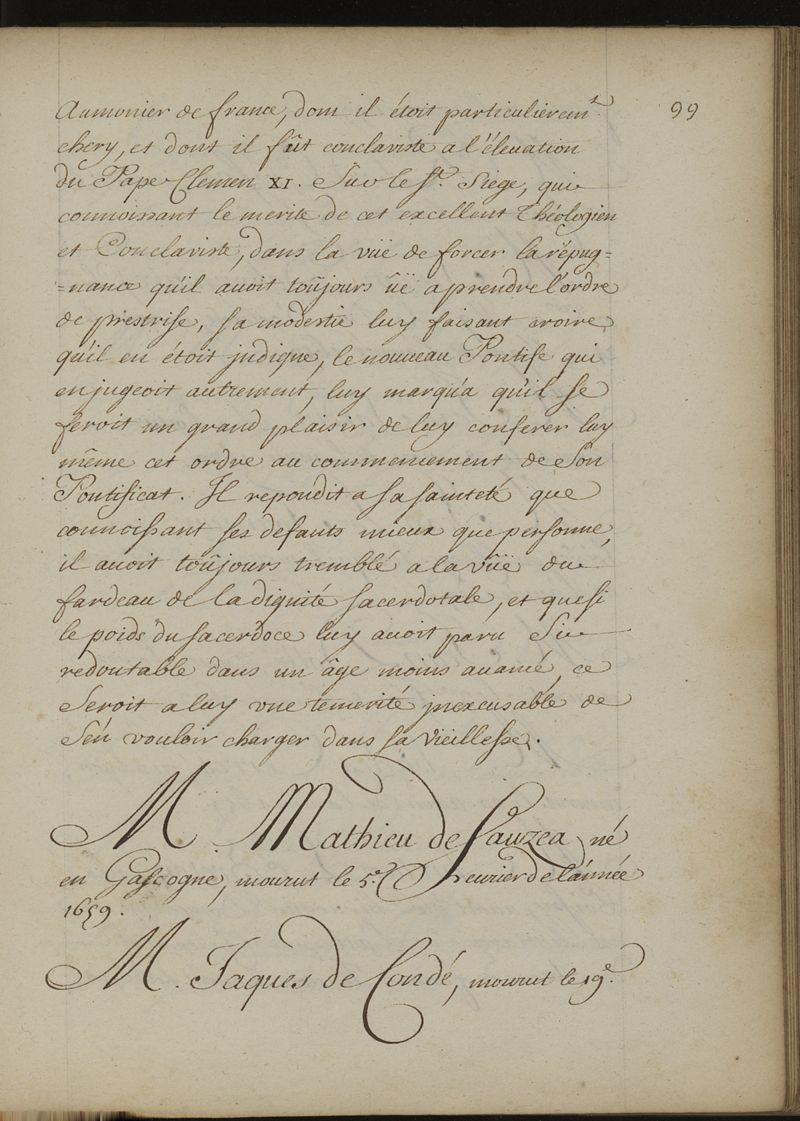 99
Aumonier de france, dont il étoit particulierem.t
chery, et dont il fût conclaviste a l'élevation
du Pape Clemen XI. Sur le S.t Siege, qui
connoissant le merite de cet excellent Théologien
et Conclaviste, dans la vüe de forcer la répug=
=nance qu'il avoit toûjours üe a prendre l'ordre
de prestrise, sa modestie luy faisant croire
qu'il en étoit jndigne, le nouveau Pontife qui
en jugeoit autrement, luy marqua qu'il se
feroit un grand plaisir de luy conferer luy
même cet ordre au commencement de Son
Pontificat. Il repondit a sa sainteté que
connoissant ses defauts mieux que personne,
il avoit toûjours tremblé a la vüe du
fardeau de la dignité sacerdotale, et que si
le poids du sacerdoce luy avoit paru Si
redoutable dans un âge moins avancé, ce
Seroit a luy une temerité jnexcusable de
S'én vouloir charger dans sa vieillesse.
M Mathieu de Lauzea né
en Gascogne, mourut le 5.e Fevrier de l'année
1659.
M. Jaques de Condé, mourut le 19.e